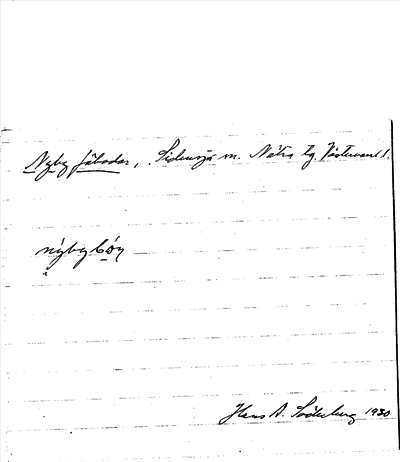 Nyby fäbodar, Sidensjö sn. Nätra tg. Västernorrl.
nýbybóy
Hans A. Söderberg 1930